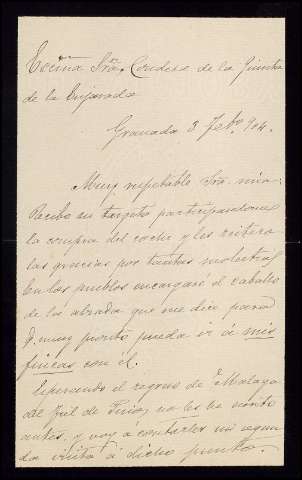 Excma Sra Condesa de la Quinta
de la Enjarada
Granada 3 Febº 904.
Muy respetable Sra. mia:
Recibo su tarjeta participandome
la compra del coche y les reitero
las gracias por tantas molestias
En los pueblos encargaré el caballo
de la alzada que me dice para
muy pronto pueda ir á mis
fincas con él.
Esperando el regreso de Malaga
de Gil de no les he escrito
antes, y voy á contarles mi segun
da visita á dicho punto.